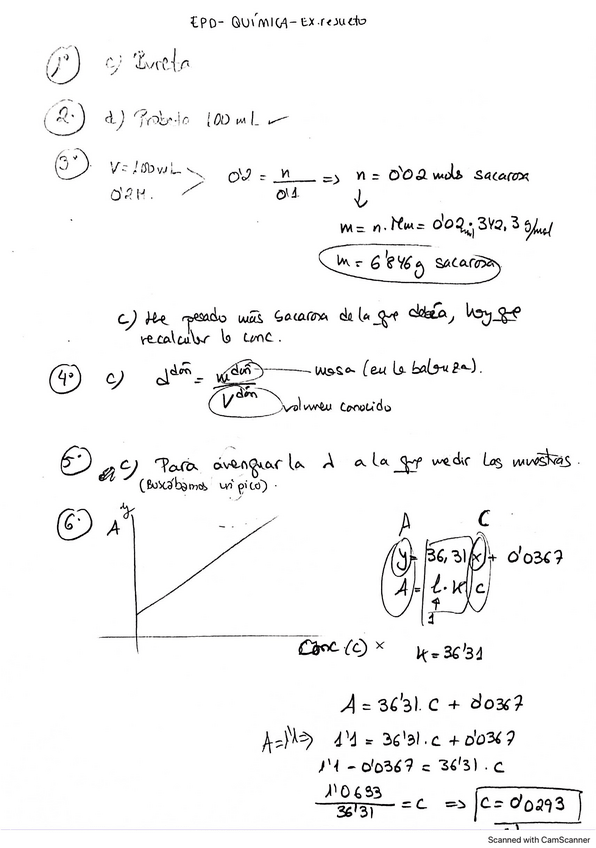 EPD - QUÍMICA - Ex. resuelto
1º c) Bureta
2. d) Probeta 100 mL ✓
3º V = 100 mL
0'2 M.
0'2 = n / 0'1 => n = 0'02 mols sacarosa
↓
m = n. Mm = 0'02 mol · 342,3 g/mol
m = 6'846 g sacarosa
c) He pesado más sacarosa de la que debía, hay que
recalcular la conc.
4º c) d dón = m dón / V dón
masa (en la balanza).
volumen conocido
5. c) Para averiguar la λ a la que medir las muestras.
(Buscábamos un pico).
6. A y
Conc (c) x
A C
y = 36,31 x + 0'0367
A = l · K c
↑
1
K = 36'31
A = 36'31. c + 0'0367
A = 1'1 => 1'1 = 36'31 . c + 0'0367
1'1 - 0'0367 = 36'31 . c
1'0633 / 36'31 = c => c = 0'0293
Scanned with CamScanner